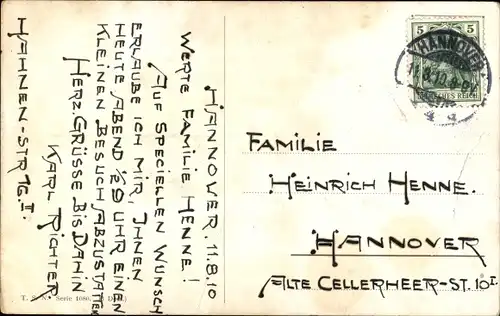 HANNOVER, 11.8.10
WERTE FAMILIE HENNE!
AUF SPECIELLEN WUNSCH
ERLAUBE ICH MIR, IHNEN
HEUTE ABEND ½9 UHR EINEN
KLEINEN BESUCH ABZUSTATTEN
HERZ. GRÜSSE BIS DAHIN
KARL RICHTER
HAHNEN-STR 7G. II.
T. S. N. Serie 1080.
5 5
HANNOVER
DEUTSCHES REICH
FAMILIE
HEINRICH HENNE.
HANNOVER
ALTE CELLERHEER-ST. 10 I.